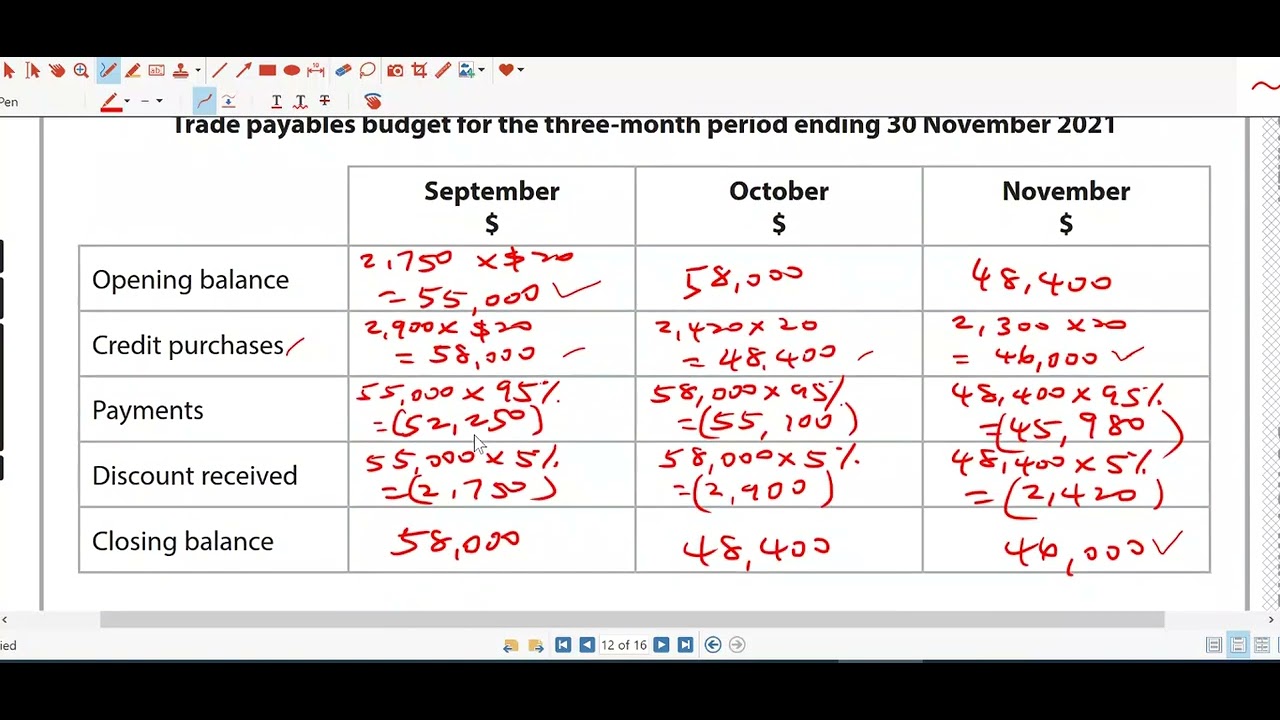 Pen
Trade payables budget for the three-month period ending 30 November 2021
September October November
$ $ $
Opening balance
2,750 x $ 20
= 55,000 ✓
58,000
48,400
Credit purchases
2,900 x $20
= 58,000
2,420 x 20
= 48,400
2,300 x 20
= 46,000 ✓
Payments
55,000 x 95%
=(52,250)
58,000 x 95%
=(55,100)
48,400 x 95%
=(45,980)
Discount received
55,000 x 5%
=(2,750)
58,000 x 5%
=(2,900)
48,400 x 5%
=(2,420)
Closing balance
58,000
48,400
46,000 ✓
ied
12 of 16